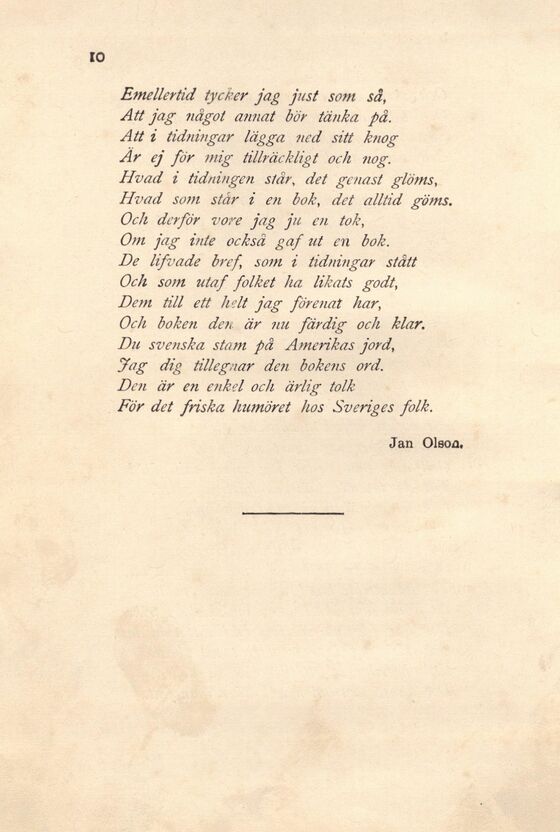 10
Emellertid tycker jag just som så,
Att jag något annat bör tänka på.
Att i tidningar lägga ned sitt knog
Är ej för mig tillräckligt och nog.
Hvad i tidningen står, det genast glöms,
Hvad som står i en bok, det alltid göms.
Och derför vore jag ju en tok,
Om jag inte också gaf ut en bok.
De lifvade bref, som i tidningar stått
Och som utaf folket ha likats godt,
Dem till ett helt jag förenat har,
Och boken den är nu färdig och klar.
Du svenska stam på Amerikas jord,
Jag dig tillegnar den bokens ord.
Den är en enkel och ärlig tolk
För det friska humöret hos Sveriges folk.
Jan Olson.